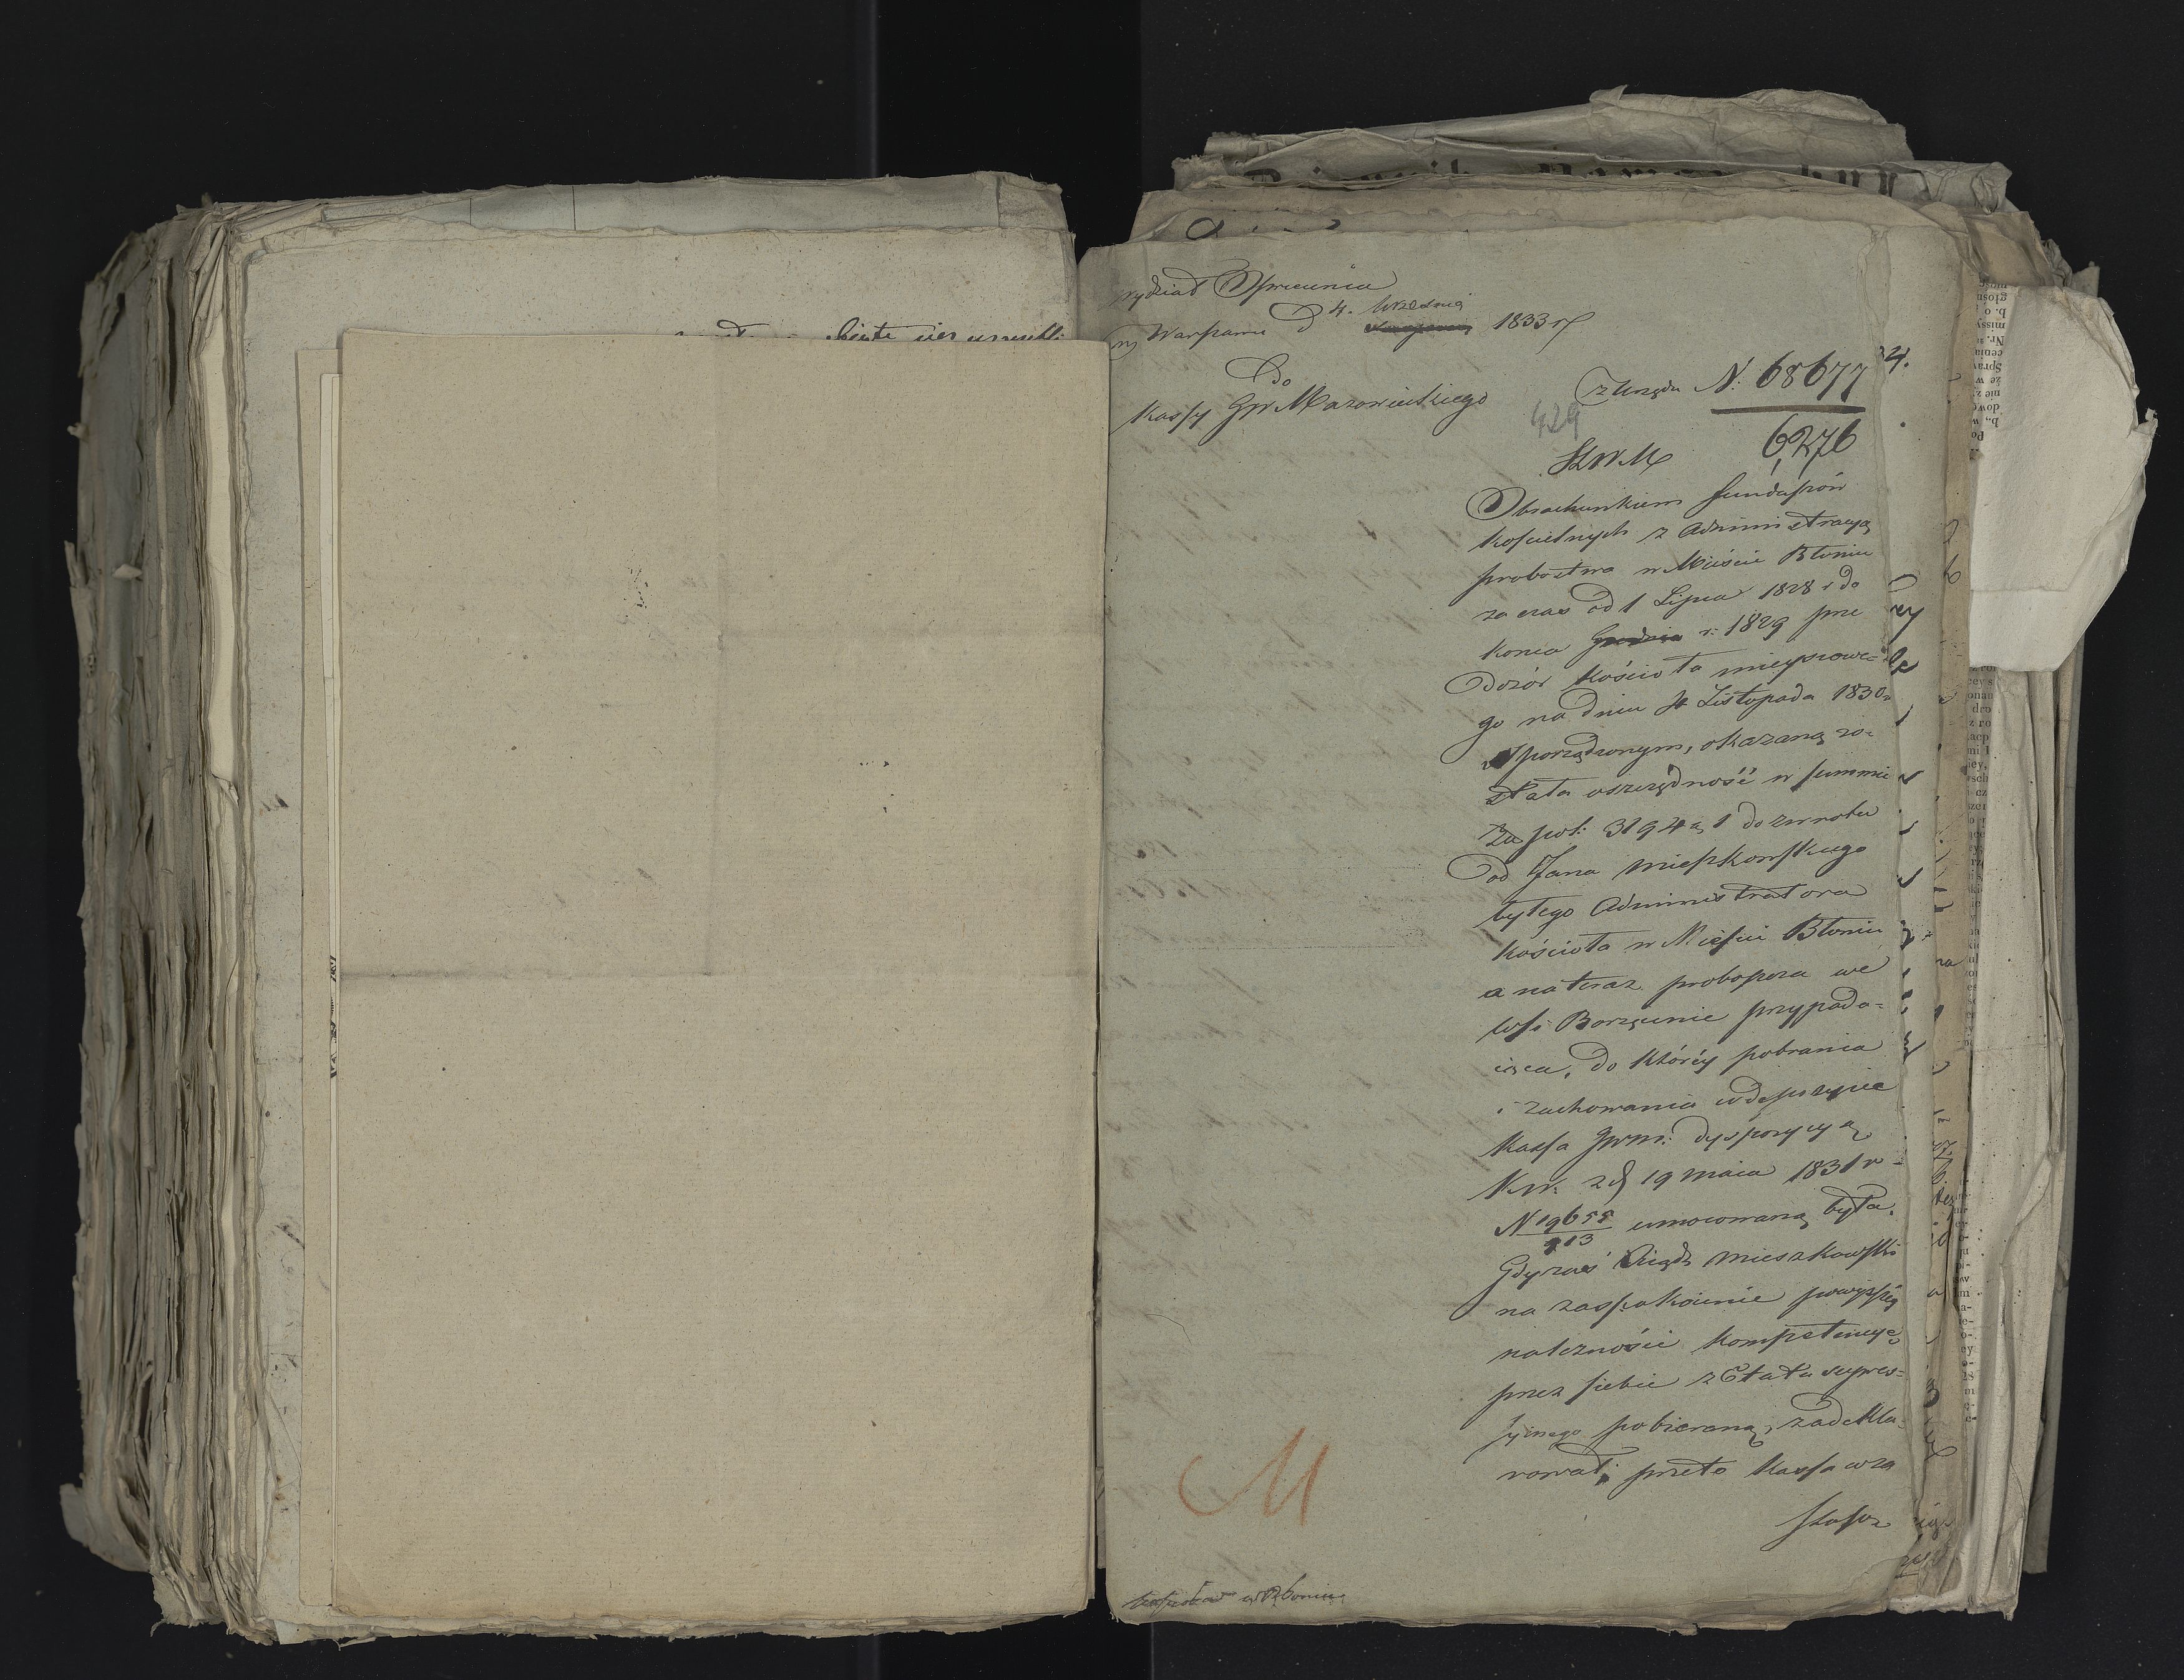 Wydział Spraw
w Warszawie D 4. Września 1833 r
Do
Kassy GW Mazowieckiego
z Urzędu N: 68677
6276
429
KWM
Obrachunkiem funduszów
kościelnych z Administracyą
probostwa w Mieście Błoniu
za czas od 1 Lipca 1828 r do
końca Grudnia r: 1829 prze
Dozór kościoła mieyscowe=
go na dniu Listopada 1830 r
sporządzonym, okazaną zo=
stała oszczędność w summie
Złp: 3194 g 1 do zwrotu
od Jana Mieszkowskiego
byłego Administratora
kościoła w Mieście Błoniu
a na teraz proboszcza we
wsi Borzęcinie przypada=
iąca, do któréy pobrania
i zachowania w depozycie
Kassa Gwm: dyspozycyą
KW: z d 19 Maia 1831 r
N 19655 umocowaną była.
113
Gdy zaś Xiądz Mieszkowski
na zaspokoienie powyższéy
należności kompetencyę
przez siebie z Etatu supres=
syinego pobieraną, zadekla=
rował; przeto Kassa wza
w Błoniu